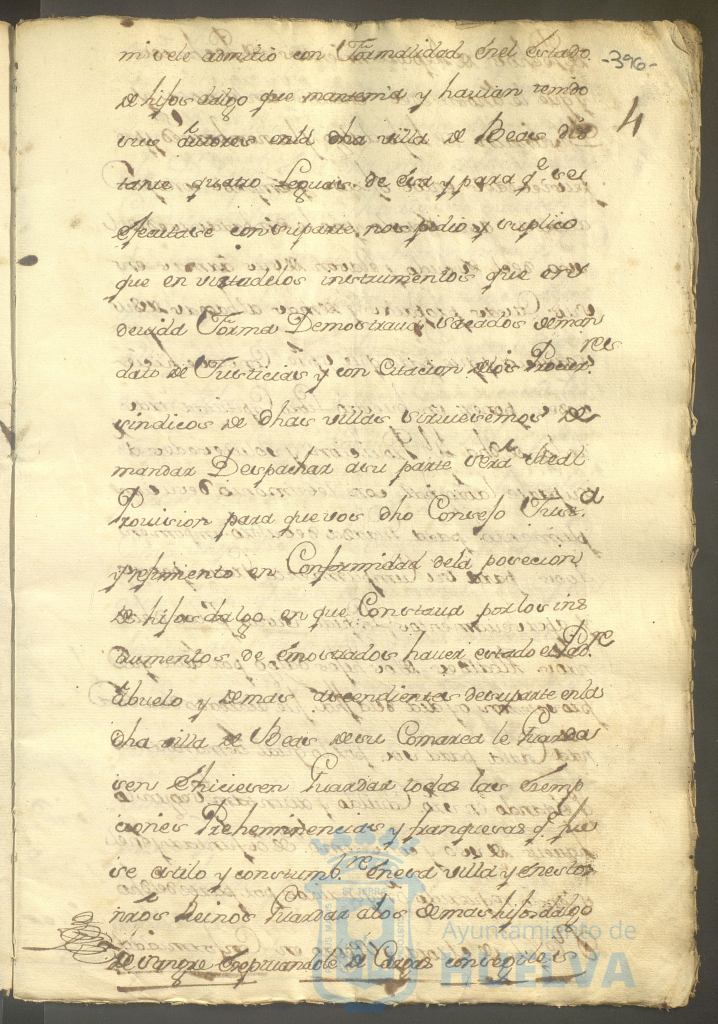 -396-
4
mi se le admitio con Formalidad en el Estado
de hijos dalgo que mantenia y havian tenido
sus autores en la dha villa de Beas dis
tante quatro Leguas de esa y para q.e se
ejecutase con su parte nos pidio y suplico
que en virtud de los instrumentos que en
devida Forma Demostrava sacados de man
dato de Justicias y con Citacion de los Procur.res
sindicos de dhas villas sirviesemos de
mandar Despachar a su parte vera Real
Provision para que vos dho Consejo Just.a
y rejimiento en Conformidad de la posecion
de hijos dalgo en que Constava por los ins
trumentos demostrados haver estado el Padre
Abuelo y demas ascendientes de su parte en la
dha villa de Beas de su Comarca le Guarda
sen e hiciesen Guardar todas las Exemp
ciones Preheminencias y franquesas q.e fue
se estilo y constumb.re en esa villa y en estos
nrōs Reinos Guardar a los demas hijosdalgo
de sangre de Cargas
Ayuntamiento de
HUELVA